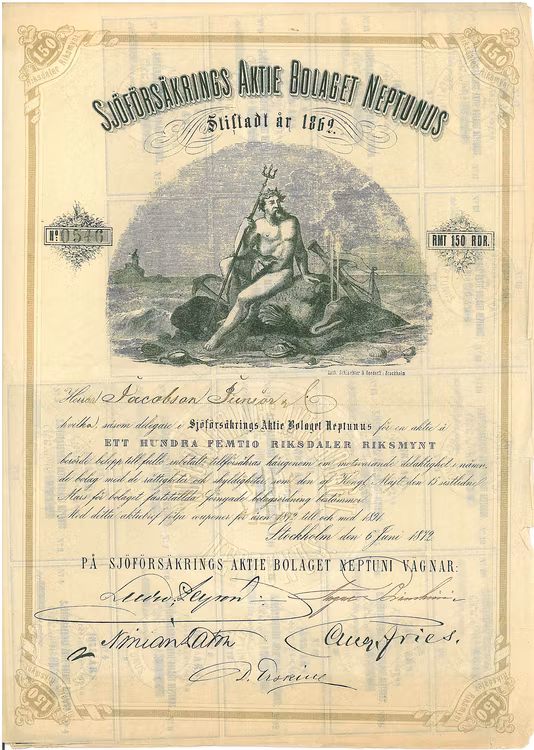 150
150
Riksdaler Riksmynt
SJÖFÖRSÄKRINGS AKTIE BOLAGET NEPTUNUS
Stiftadt år 1862.
No 0546
RMT 150 RDR.
Lith. Schlachter & Seedorff, Stockholm
Herrar Jacobson Junior & C
hvilka, såsom delegare i Sjöförsäkrings Aktie Bolaget Neptunus för en aktie å
ETT HUNDRA FEMTIO RIKSDALER RIKSMYNT
hvilket belopp till fullo inbetalt tillförsäkras härigenom en motsvarande delaktighet i nämn-
de bolag med de rättigheter och skyldigheter som den af Kongl. Majt. den 15 sistledne
Mars för bolaget fastställda förnyade bolagsordning bestämmer.
Med detta aktiebref följa couponer för åren 1872 till och med 1891.
Stockholm den 6 Juni 1872.
PÅ SJÖFÖRSÄKRINGS AKTIE BOLAGET NEPTUNI VÄGNAR:
Aug. Fries.
D. Erskine
150
150